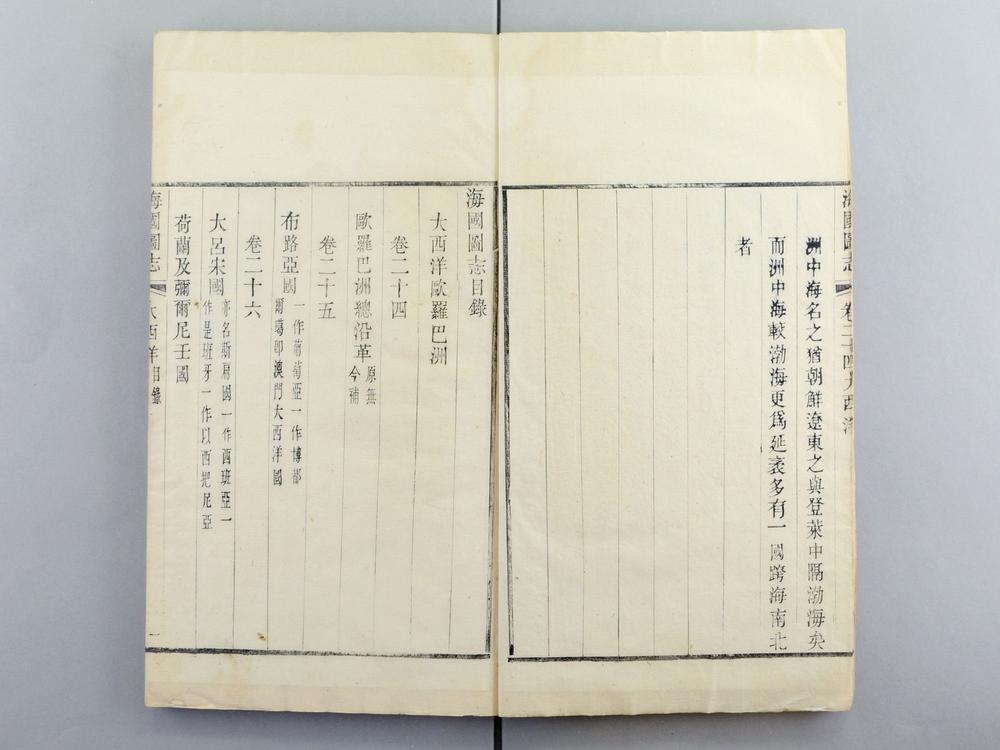 海國圖志 卷二十四大西洋
洲中海名之猶朝鮮遼東之與登萊中隔渤海矣
而洲中海較渤海更爲延袤多有一國跨海南北
者
海國圖志目錄
大西洋歐羅巴洲
卷二十四
歐羅巴洲總沿革 原無
今補
卷二十五
布路亞國 一作葡萄亞一作博都
爾葛即澳門大西洋國
卷二十六
大呂宋國 亦名斯扁國一作西班亞一
作是班牙一作以西把尼亞
荷蘭及彌爾尼壬國
海國圖志 大西洋目錄 一